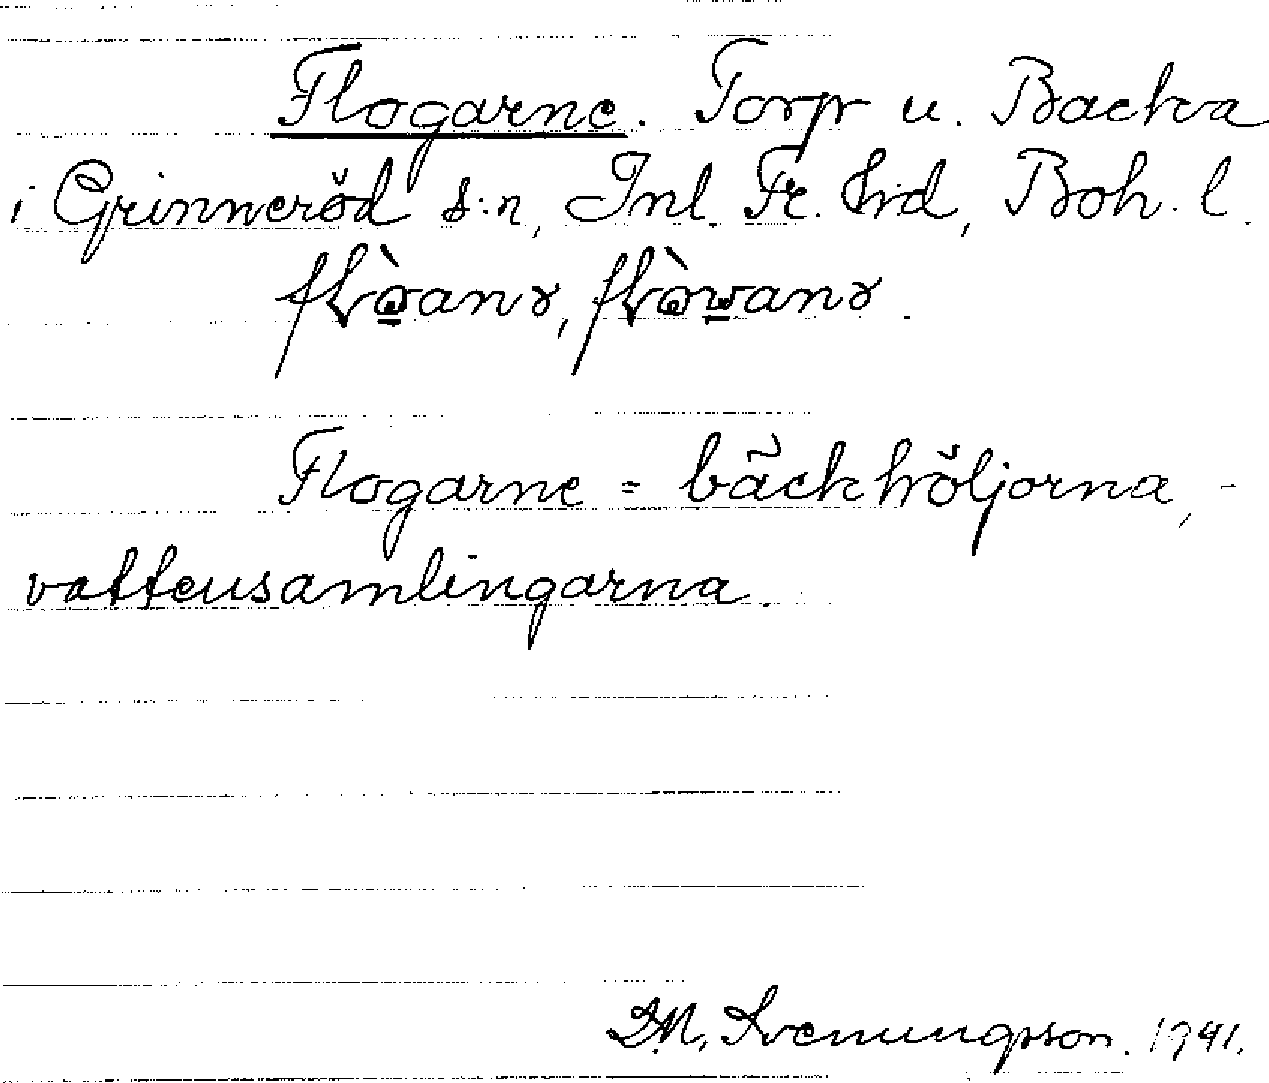 Flogarne. Torp u. Backa
i Grinneröd s:n, Inl. Fr. hd, Boh. l.
Flogarne = bäckhöljorna, -
vattensamlingarna.
Svenungsson. 1941.